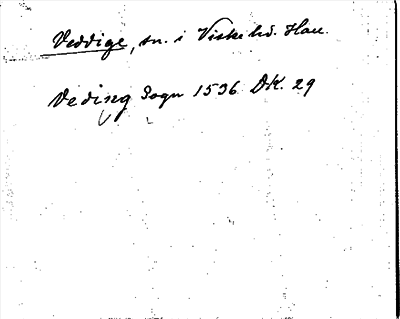 Veddige, sn. i Viske hd. Hall.
Veding Sogn 1536 DK. 29